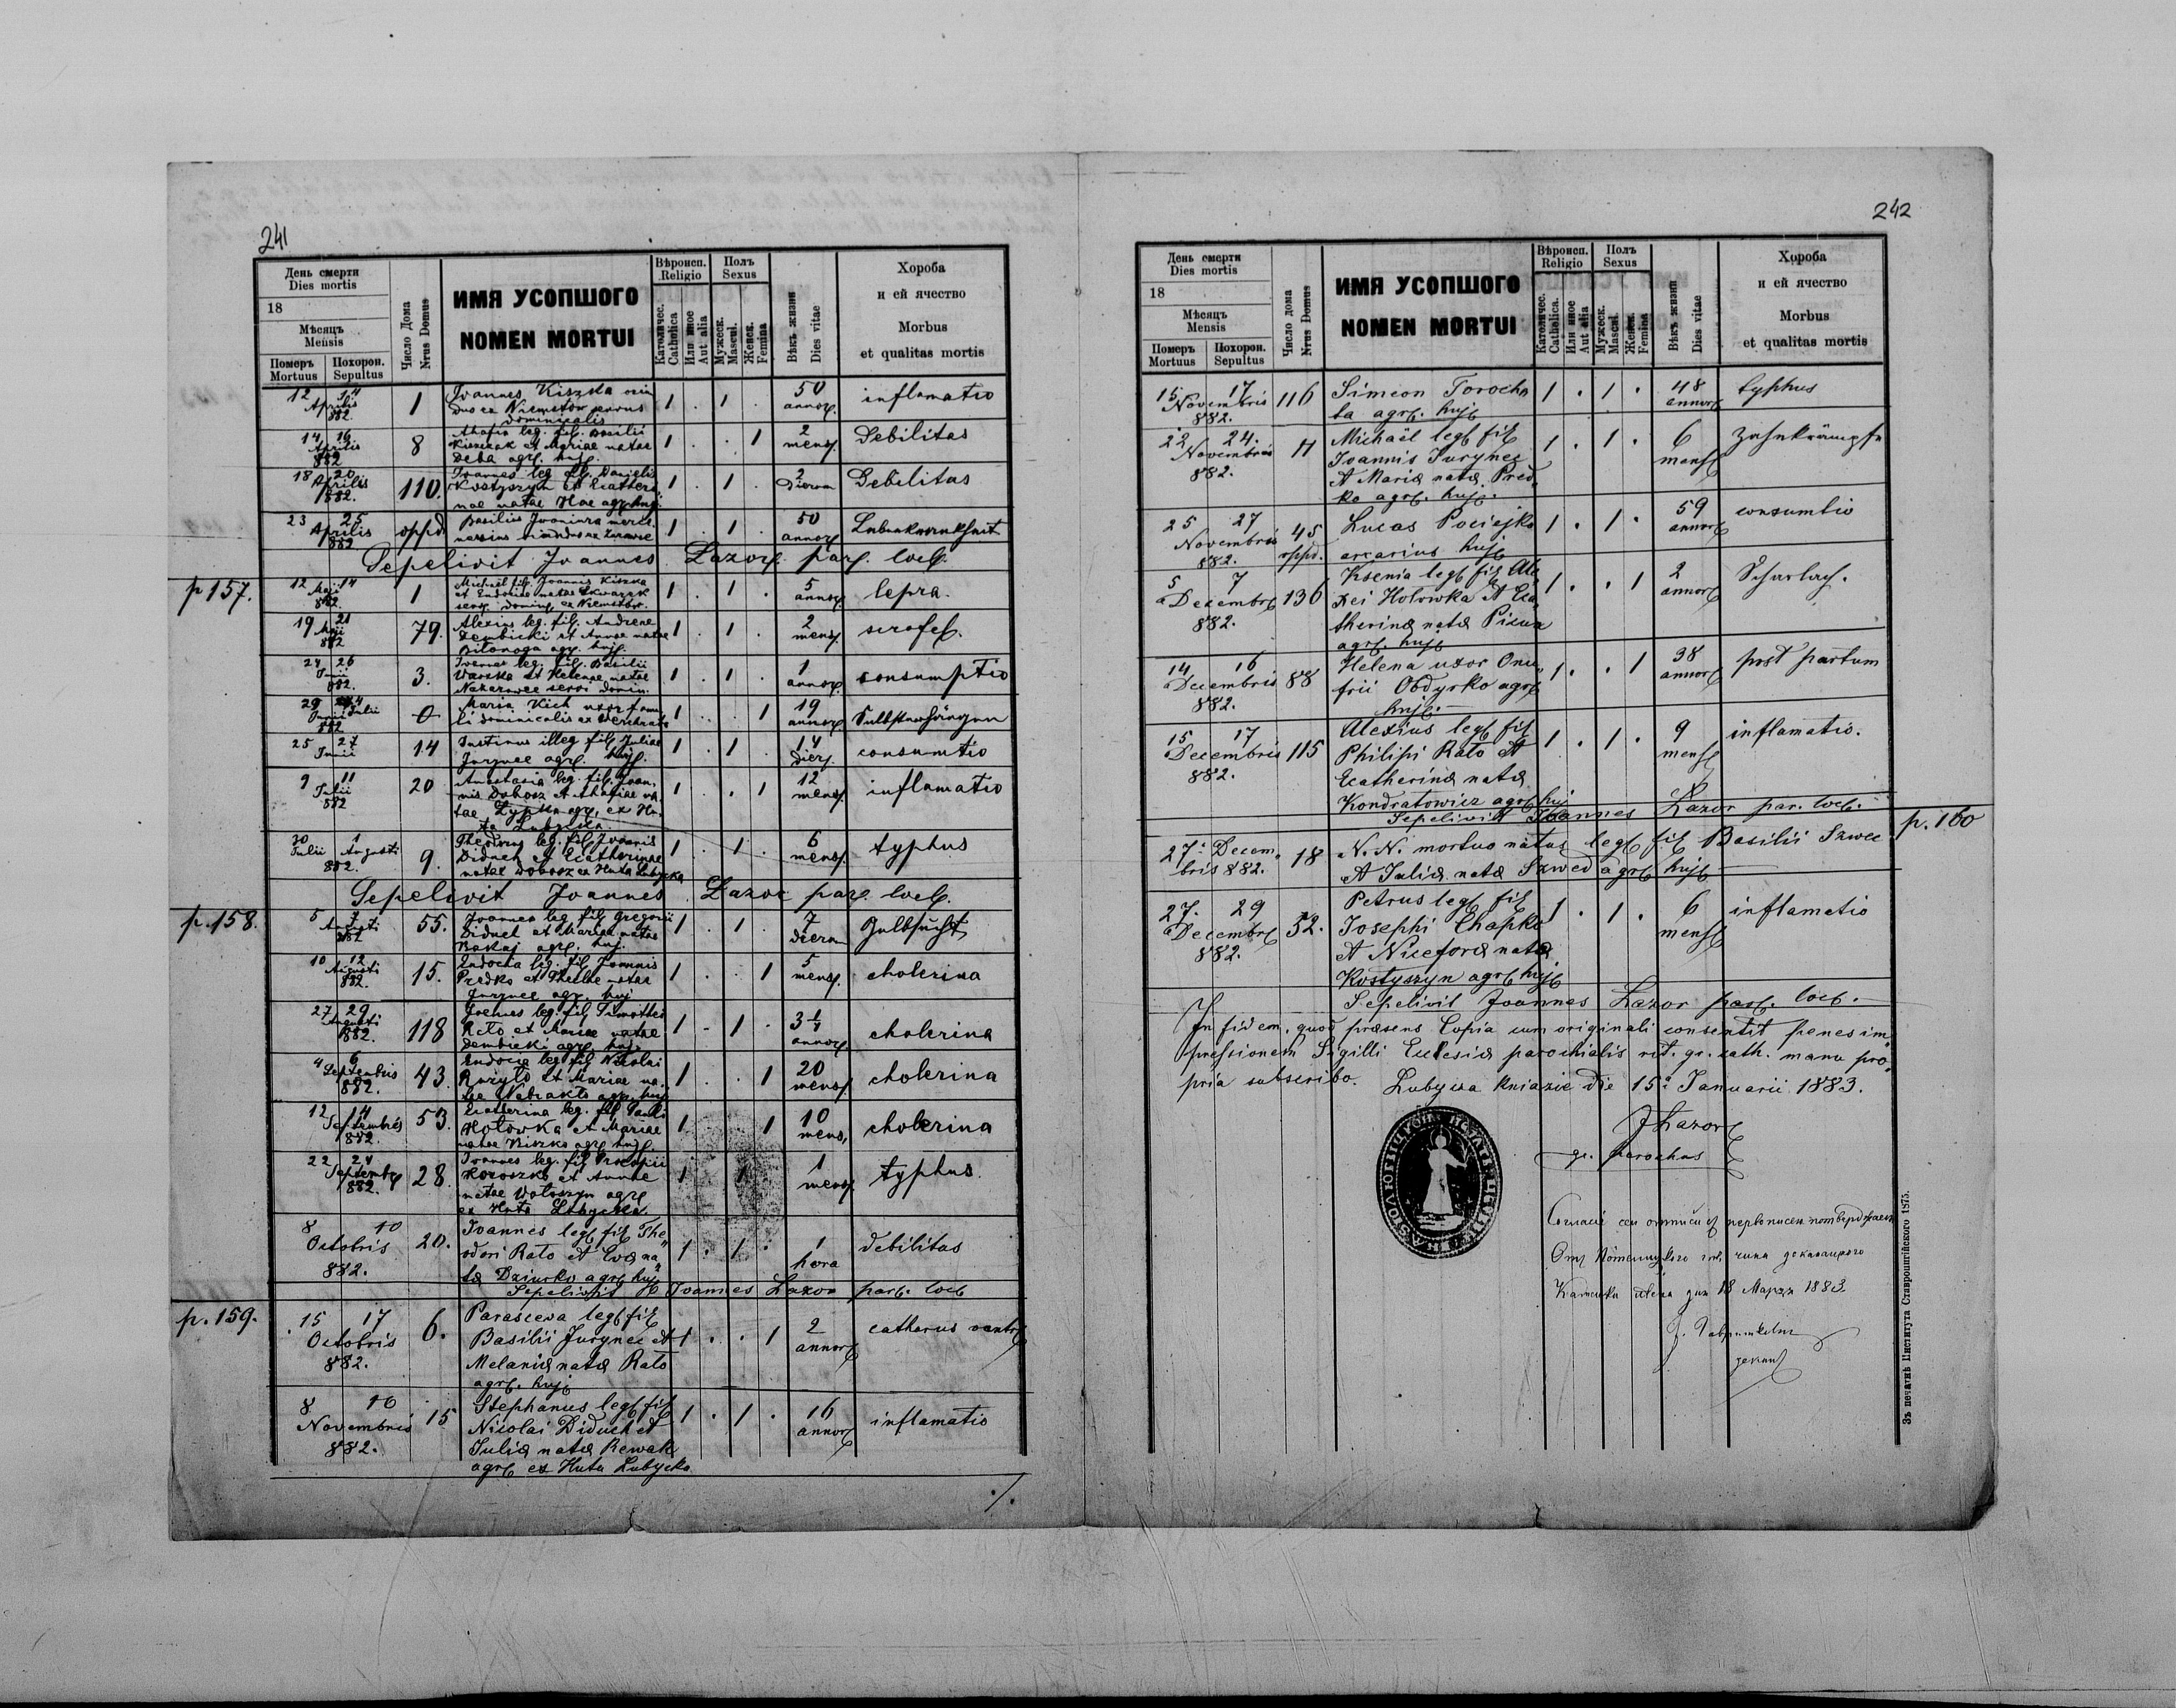 241
День смерти
Dies mortis
18
Мѣсяцъ
Mensis
Померъ Похорон.
Mortuus Sepultus
Число Дома
Nrus Domus
ИМЯ УСОПШОГО
NOMEN MORTUI
Вѣроисп.
Religio
Католичес.
Catholica
Или иное
Aut alia
Полъ
Sexus
Мужеск.
Mascul.
Женск.
Femina
Вѣкъ жизни
Dies vitae
Хороба
и ей ячество
Morbus
et qualitas mortis
12 14
Aprilis
882.
1
Joannes Kiszka
dus ex Niemstów servus
dominicalis
1 . 1 .
50
annor.
inflamatio
14 16
Aprilis
882
8
leg. fil. Basilii
et Mariae natae
agr. huj.
1 . . 1
2
mens.
Debilitas
18 20
Aprilis
882.
110.
Joannes leg. fil. Danielis
Kostyszyn et Ecatheri
nae natae Hae agr. huj.
1 . 1 .
2
dierum
Debilitas
23 25
Aprilis
882
oppid.
Basilius
1 . 1 .
50
annor.
Sepelivit Joannes Lazor par. loc.
p 157.
12 14
Maji
882.
1
Michael fil. Joannis Kiszka
et Eudociae natae Skwarzak
serv. domin. ex Niemstów.
1 . 1 .
5
annor.
lepra.
19 21
Maji
882
79.
Alexius leg. fil. Andreae
Dembicki et Annae natae
Bilonoga agr. huj.
1 . 1 .
2
mens.
scrofel.
24 26
Junii
882.
3.
leg. fil. Basilii
Warska et Helenae natae
Nazarewec servi domin.
1 . 1 .
1
annor.
consumptio
29
Junii Julii
882
0
Maria Kich uxor famu
li dominicalis ex Werchrata
1 . . 1
19
annor.
25 27
Junii
14
Justinus illeg. fil. Juliae
Jurynec agr. huj.
1 . 1
14
dier.
consumtio
9 11
Julii
882
20
Anastasia leg. fil. Joan,
nis Dobosz et Athafiae na
tae Zypka agr. ex Hu
ta Lubycka.
1 . . 1
12
mens.
inflamatio
30 1
Julii Augusti
882.
9.
Theodorus leg. fil. Joannis
Diduch et Ecatherinae
natae Dobosz ex Huta Lubycka
1 . 1 .
6
mens.
typhus
Sepelivit Joannes Lazor par. loc.
p. 158.
5 7
Augusti
882
55.
Joannes leg. fil. Gregorii
Diduch et Mariae natae
Bakaj agr. huj.
1 . 1 .
7
dierum
Gelbsucht
10 12
Augusti
882.
15.
Eudocia leg. fil. Joannis
Predko et Theclae natae
Jurynec agr. huj
1 . . 1
5
mens.
cholerina
27 29
Augusti
882.
118
Joannes leg. fil. Timothei
Rato et Mariae natae
Dembicki agr. huj.
1 . 1 .
3 1/4
annor.
cholerina
4 6
Septembris
882.
43.
Eudocia leg. fil. Nicolai
Ryzyło et Mariae na
tae agr. huj
1 . . 1
20
mens
cholerina
12 14
Septembris
882.
53.
Ecatherina leg. fil. Pauli
Hołowka et Mariae
natae Kiszka agr. huj.
1 . . 1
10
mens,
cholerina
22 24
Septembr.
882.
28.
Joannes leg. fil. Procopii
Koroszko et Annae
natae Wołoszyn agr.
ex Huta Lubycka.
1 . 1
1
mens.
typhus.
8 10
Octobris
882.
20.
Joannes leg. fil. The
odori Rato et Evæ na
tæ Dziurko agr. huj.
1 . 1 .
1
hora
debilitas
Sepelivit Joannes Lazor par. loc
p. 159.
15 17
Octobris
882.
6.
Parasceva leg. fil.
Basilii Jurynec et
Melaniæ natæ Rato
agr. huj.
1 . . 1
2
annor.
catharus ventr.
8 10
Novembris
882.
15
Stephanus leg. fil.
Nicolai Diduch et
Juliæ natæ Rewak
agr. ex Huta Lubycka
1 . 1 .
16
annor.
inflamatio
./.
242
День смерти
Dies mortis
18
Мѣсяцъ
Mensis
Померъ Похорон.
Mortuus Sepultus
Число дома
Nrus Domus
ИМЯ УСОПШОГО
NOMEN MORTUI
Вѣроисп.
Religio
Католичес.
Catholica.
Или иное
Aut alia
Полъ
Sexus
Мужеск.
Mascul.
Женск.
Femina
Вѣкъ жизни
Dies vitae
Хороба
и ей ячество
Morbus
et qualitas mortis
15 17
Novembris
882.
116
Simeon Torocha
ta agr. huj.
1 . 1 .
48
annor.
typhus
22 24.
Novembris
882.
11
Michaël leg. fil.
Joannis Jurynec
et Mariæ natæ Pred,
ko agr. huj.
1 . 1 .
6
mens.
Zahnkrämpfe
25 27
Novembris
882.
45
oppd.
Lucas Pociejko
arcarius huj.
1 . 1 .
59
annor.
consumtio
5 7
Decembr.
882.
136
Ksenia leg. fil. Ale
xei Hołowka et Eca
therinæ natæ Picura
agr. huj.
1 . . 1
2
annor.
Scharlach.
14 16
Decembris
882.
88
Helena uxor Onu
frii Obdyrko agr.
huj.
1 . . 1
38
annor.
post partum
15 17
Decembris
882.
115
Alexius leg. fil.
Philipi Rato et
Ecatherinæ natæ
Kondratowicz agr. huj
1 . 1 .
9
mens.
inflamatio.
Sepelivit Joannes Lazor par. loc.
p. 160
27. Decem
bris 882.
18
N. N. mortuo natus leg. fil. Basilii Szwec
et Juliæ natæ Szwed agr. huj.
27. 29
Decembr.
882.
32.
Petrus leg. fil.
Josephi Chapko
et Niceforæ natæ
Kostyszyn agr. huj.
1 . 1 .
6
mens.
inflamatio
Sepelivit Joannes Lazor par. loc.
In fidem, quod præsens Copia cum originali consentit penes im
pressionem Sigilli Eclesiæ parochialis rit. gr. cath. manu pro,
pria subscribo. Lubycza Kniazie die 15. Januarii 1883.
JLazor
gr. parochus
18 Марта 1883
деканъ
Зъ печатнѣ Института Ставропигійского 1875.